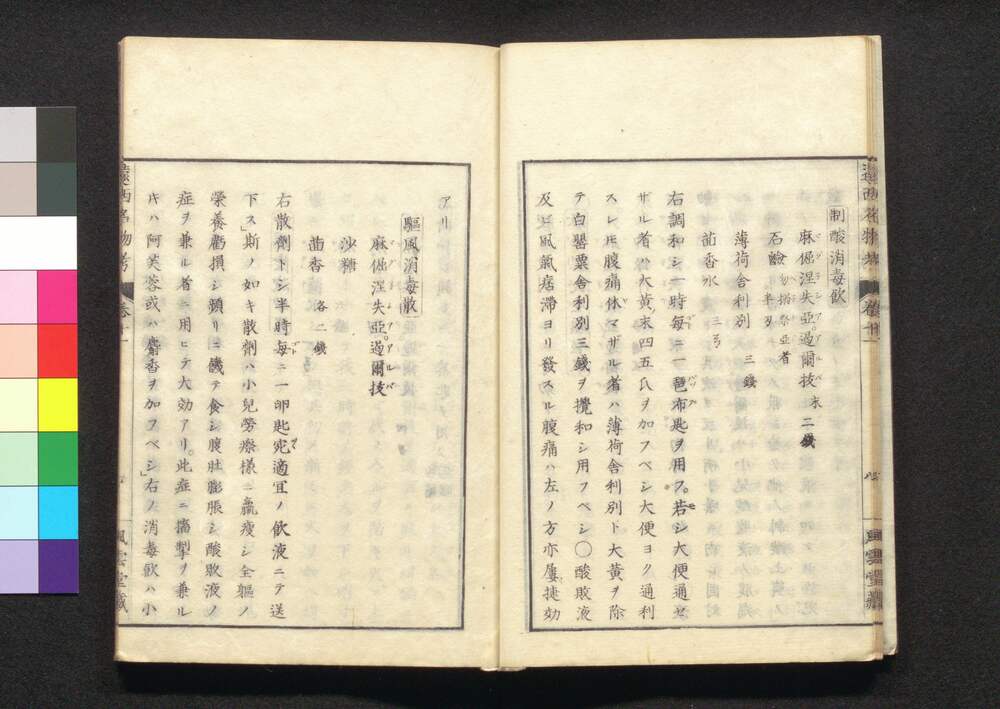 制酸消毒飲
麻倔涅失亞。過爾抜 末 二錢
石鹸 勿搦祭亞者 半匁
薄荷舎利別 三錢
茴香水 三弓
右調和シ一時毎ニ一琶布匙ヲ用フ。若シ大便通セ
ザル者ハ大黄ノ末四五氏ヲ加フベシ大便ヨク通利
スレ𪜈腹痛休マザル者ハ薄荷舎利別ト大黄ヲ除
テ白罌粟舎利別三錢ヲ攪和シ用フベシ〇酸敗液
及ビ風氣痞滞ヨリ發スル腹痛ハ左ノ方亦屢捷効
アリ
驅風消毒散
麻倔涅失亞。過爾抜
沙糖
茴香 各二錢
右散劑トシ半時毎ニ一卵匙宛適宜ノ飲液ニテ送
下ス」斯ノ如キ散劑ハ小兒勞瘵様ニ羸瘦シ全軀ノ
榮養虧損シ頻リニ饑テ食シ腹肚膨脹シ酸敗液ノ
症ヲ兼ル者ニ用ヒテ大効アリ。此症ニ搐掣ヲ兼ル
片ハ阿芙蓉或ハ麝香ヲ加フベシ」右ノ消毒飲ハ小
遠西名物考
風雲堂藏